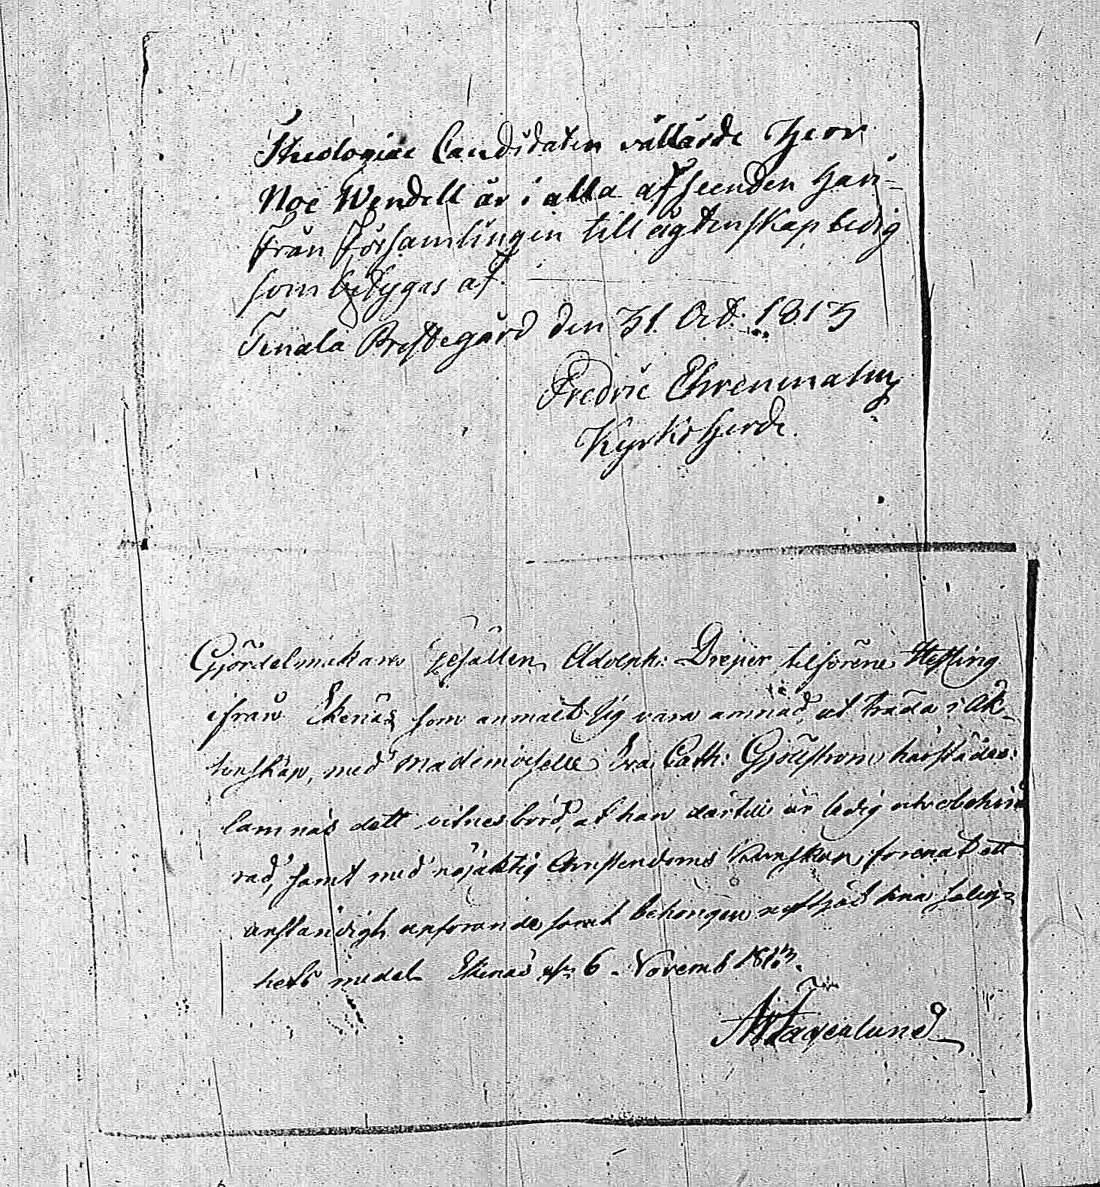 Theologiae Candidaten vällärde Herr
Noë Wendell är i alla afseenden häri-
från Församlingen till ägtenskap ledig
som betygas af.
Tenala Prestegård den 31 Oct: 1813
Fredric Ehrenmalm
Kyrkoherde.
Gjördelmakare Gesällen Adolph: Dreijer tilförene Hefling
ifrån Ekenäs som anmält sig vara ämnad at träda i Äk-
tenskap, med Mademoiselle Eva Cath: Gjöllström härstädes:
lämnas dett vitnesbörd, at han därtill är ledig och obehin-
rad, samt med nöjaktig Christendoms kunskap, förenat ett
anständigt anförande samt behörigen nyttjat sina salig-
hets medel. Ekenäs 6 Novemb 1813.
Fagerlund